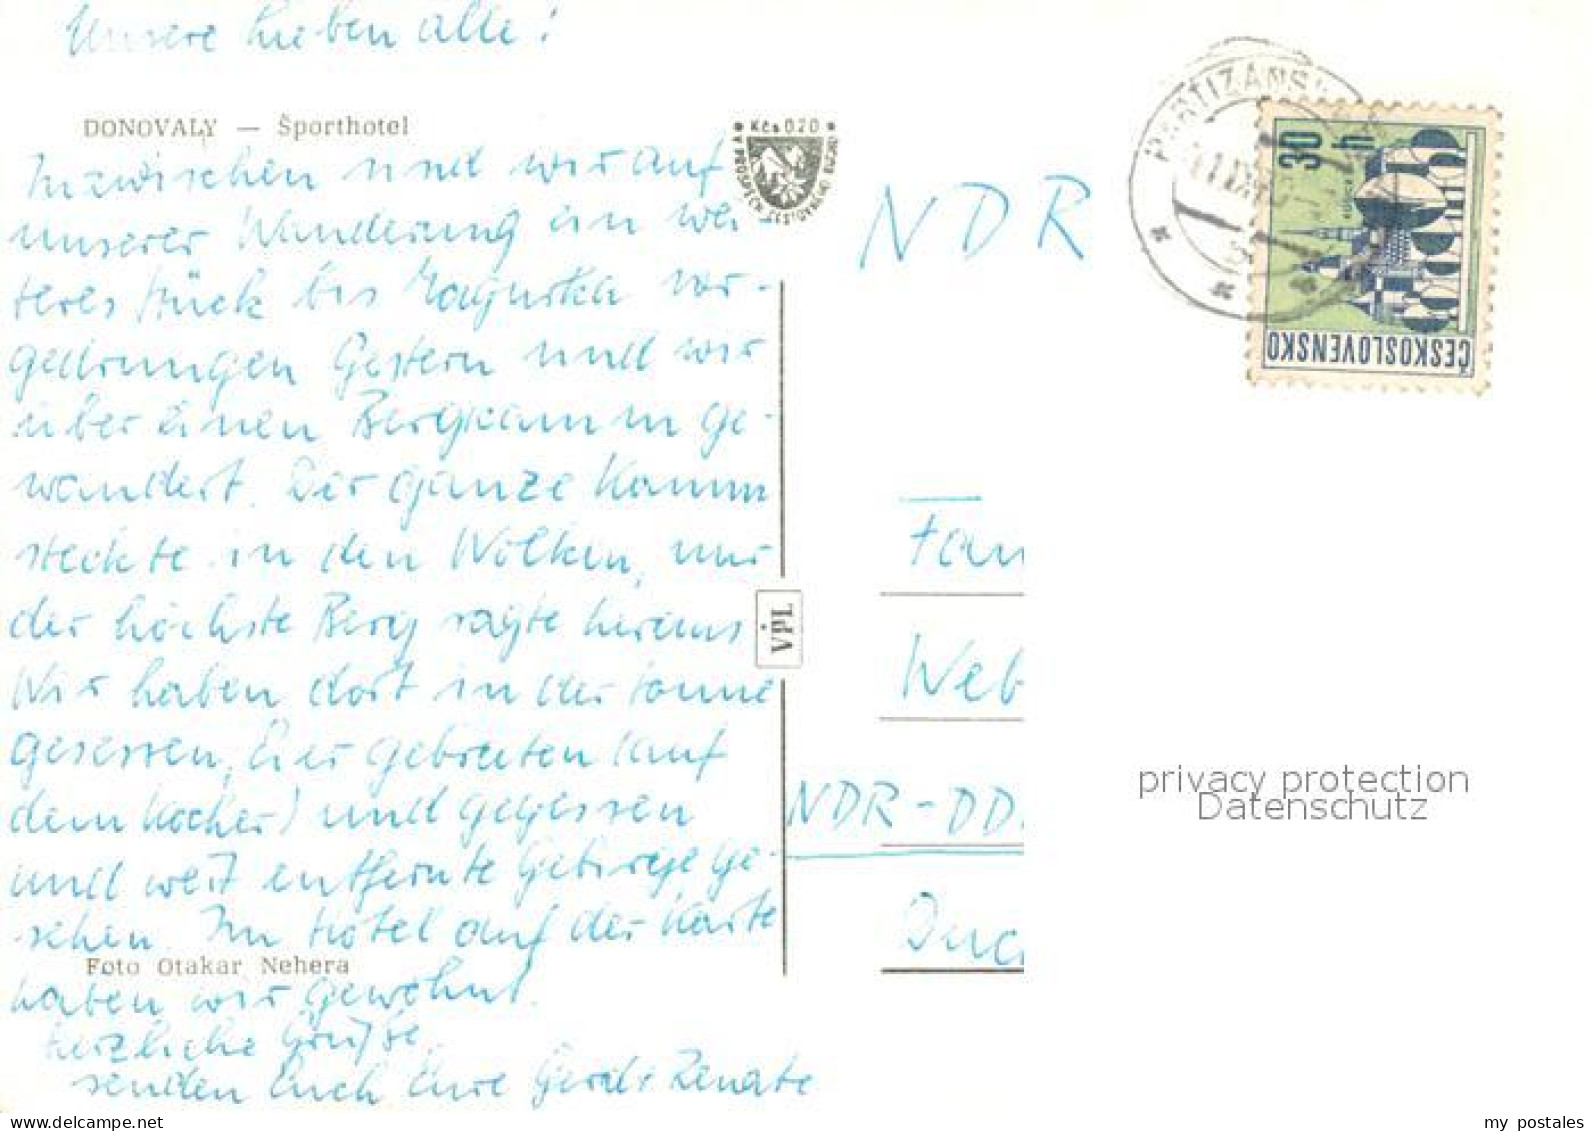 Unsere Lieben alle!
DONOVALY — Športhotel
Inzwischen sind wir auf
unserer Wanderung ein wei-
teres Stück bis Magurka vor-
gedrungen Gestern sind wir
über einen Bergkamm ge-
wandert. Der ganze Kamm
steckte in den Wolken, nur
der höchste Berg ragte heraus
Wir haben dort in der Sonne
gesessen, Eier gebraten (auf
dem Kocher) und gegessen
und weit entfernte Gebirge ge-
sehen. Im Hotel auf der Karte
Foto Otakar Nehera
haben wir gewohnt.
Herzliche Grüße
senden Euch Eure Gerd + Renate
* Kčs 0,20 *
VPL
NDR
Fam
Web
NDR-DD
PARTIZANS
30 h
ČESKOSLOVENSKO
privacy protection
Datenschutz
delcampe.net
my_postales